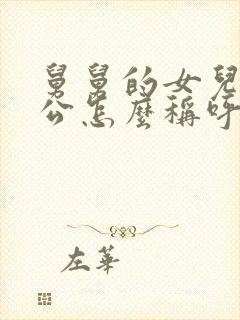 舅舅的女兒
公怎麼稱呼
左華